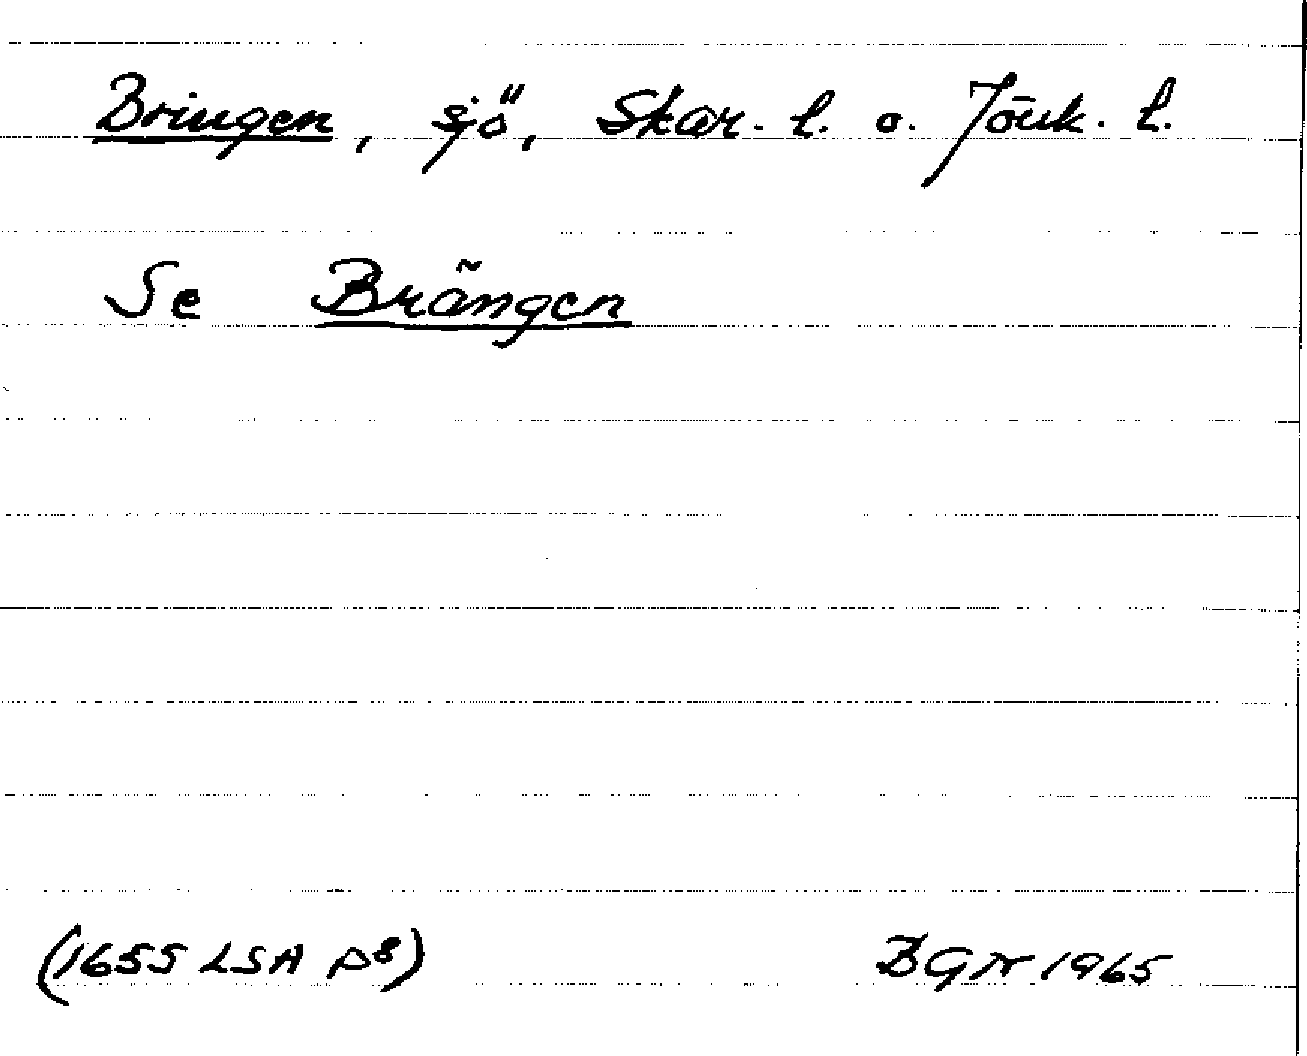 Bringen, sjö, Skar. l. o. Jönk. l.
Se Brängen
(1655 LSA P8) BGN 1965